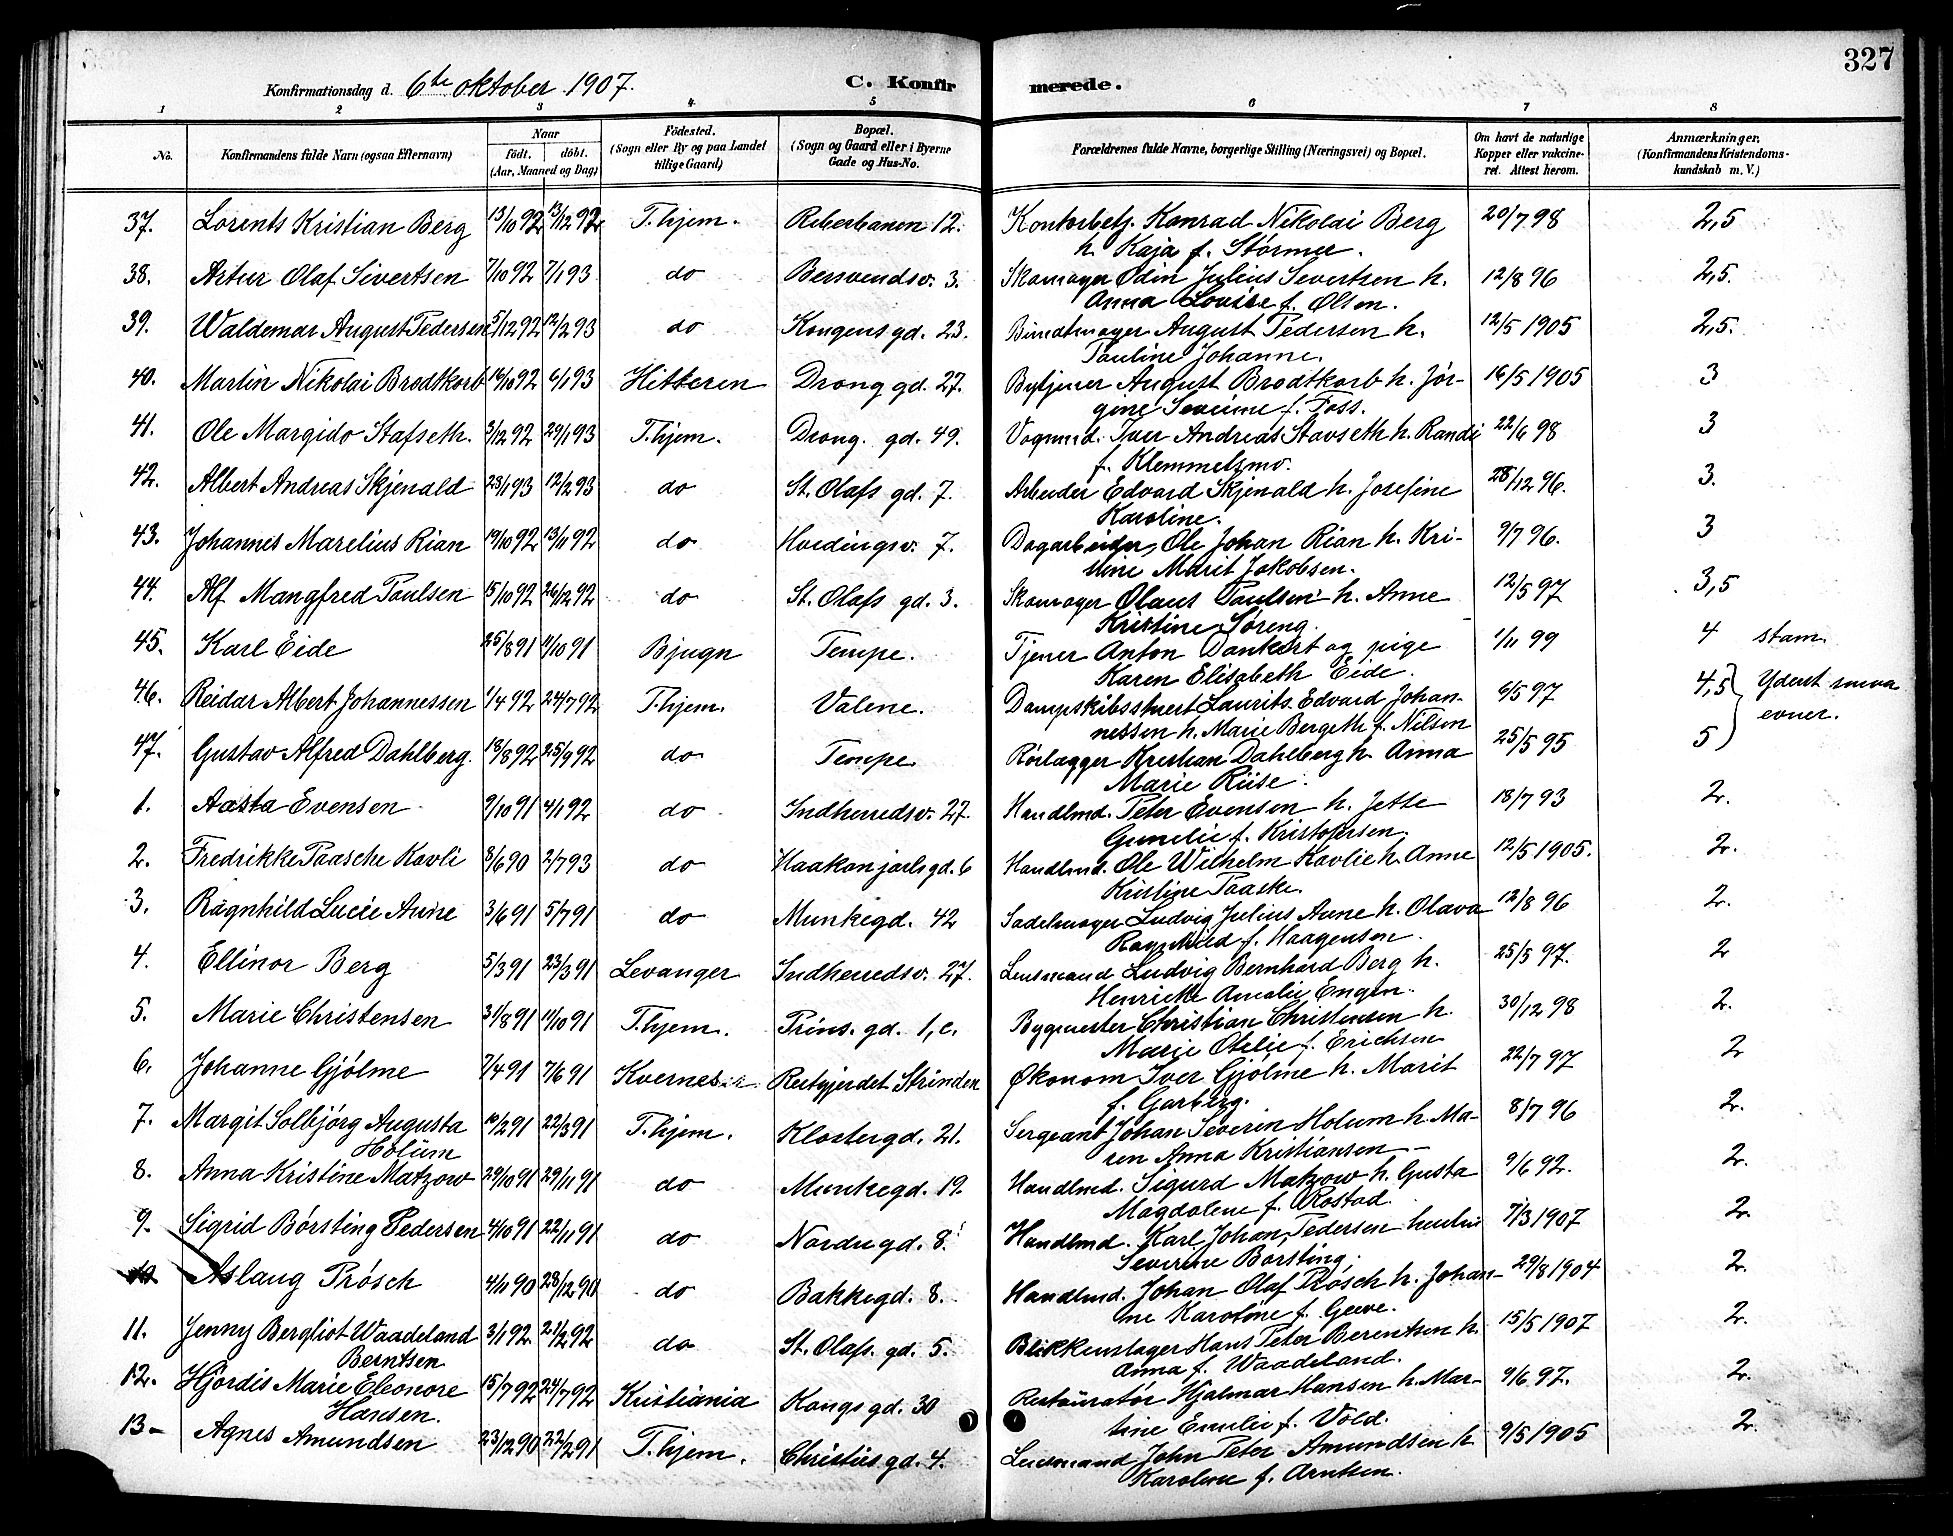 327
Konfirmationsdag d. 6te oktober 1907. C. Konfir merede.
1 2 3 4 5 6 7 8
No. Konfirmandens fulde Navn (ogsaa Efternavn) Naar født. døbt. (Aar, Maaned og Dag) Fødested. (Sogn eller By og paa Landet tillige Gaard) Bopæl. (Sogn og Gaard eller i Byerne Gade og Hus-No. Forældrenes fulde Navne, borgerlige Stilling (Næringsvei) og Bopæl. Om havt de naturlige Kopper eller vakcineret. Attest herom. Anmærkninger, (Konfirmandens Kristendomskundskab m. V.)
37. Lorents Kristian Berg 13/10 92 13/12 92 T.hjem. Reberbanen 12. Kontorbetj. Konrad Nikolai Berg 20/7 98 2,5
h. Kaja f. Størmer.
38. Artur Olaf Sivertsen 7/10 92 7/1 93 do Bersvendsv. 3. Skomager Odin Julius Sivertsen h. 12/8 96 2,5.
Anna Lovise f. Olsen.
39. Waldemar August Pedersen 5/12 92 12/2 93 do Kongens gd. 23. Bundtmager August Pedersen h. 12/5 1905 2,5.
Pauline Johanne.
40. Martin Nikolai Brodtkorb 16/10 92 6/1 93 Hitteren Drong gd. 27. Bytjener August Brodtkorb h. Jør- 16/5 1905 3
gine Severine f. Foss.
41. Ole Margido Stafseth. 3/12 92 29/1 93 T.hjem. Drong. gd. 49. Vognmd. Iver Andreas Stavseth h. Randi 22/6 98 3
f. Klemmetsmo.
42. Albert Andreas Skjenald 23/1 93 12/2 93 do St. Olafs gd. 7. Arbeider Edvard Skjenald h. Josefine 28/12 96. 3.
Karoline.
43. Johannes Marelius Rian 19/10 92 13/11 92 do Hvedingsv. 7. Dagarbeider, Ole Johan Rian h. Kri- 9/7 96. 3
stine Marit Jakobsen.
44. Alf Mangfred Paulsen 15/10 92 26/12 92 do St. Olafs gd. 3. Skomager Olaus Paulsen h. Anne 12/5 97 3,5
Kristine Søreng.
45. Karl Eide 25/8 91 11/10 91 Bjugn Tempe. Tjener Anton Dankert og pige 1/11 99 4 stam.
Karen Elisabeth Eide.
46. Reidar Albert Johannessen 1/4 92 24/7 92 T.hjem. Valene. Dampskibsstuert Laurits Edvard Johan- 6/5 97 4,5 Yderst smaa
nessen h. Marie Bergeth f. Nilsen evner.
47. Gustav Alfred Dahlberg. 18/8 92 25/9 92 do Tempe Rørlægger Kristian Dahlberg h. Anna 25/5 95 5
Marie Riise.
1. Aasta Evensen 9/10 91 4/1 92 do Indherredsv. 27. Handlmd. Peter Evensen h. Jette 18/7 93 2.
Gunelie f. Kristofersen.
2. Fredrikke Paasche Kavli 8/6 90 2/7 93 do Haakon jarls gd. 6 Handlmd. Ole Wilhelm Kavlie h. Anne 12/5 1905. 2.
Kristine Paaske.
3. Ragnhild Lucie Aune 3/6 91 5/7 91 do Munkegd. 42 Sadelmager Ludvig Julius Aune h. Olava 12/8 96 2.
Ragnhild f. Haagensen.
4. Ellinor Berg 5/3 91 23/3 91 Levanger Indherredsv. 27. Lensmand Ludvig Bernhard Berg h. 25/5 97. 2
Henricke Amalie Engen.
5. Marie Christensen 31/8 91 11/10 91 T.hjem. Prins. gd. 1,c. Bygmester Christian Christensen h. 30/12 98 2.
Marie Otelie f. Erichsen
6. Johanne Gjølme 7/4 91 7/6 91 Kvernes Restgjerdet Strinden Økonom Iver Gjølme h. Marit 22/7 97 2
f. Garberg.
7. Margit Solbjørg Augusta 10/2 91 22/3 91 T.hjem. Klostergd. 21. Sergeant Johan Severin Holum h. Ma- 8/7 96 2.
Holum ren Anna Kristiansen
8. Anna Kristine Matzow 29/10 91 29/11 91 do Munkegd. 19. Handlmd. Sigurd Matzow h. Gusta 9/6 92. 2.
Magdalene f. Rostad.
9. Sigrid Børsting Pedersen 4/10 91 22/11 91 do Nordregd. 8. Handlmd. Karl Johan Pedersen 7/3 1907 2.
Severine Borsting.
10 Aslaug Prøsch 4/11 90 28/12 90 do Bakkegd. 8. Handlmd. Johan Olaf Prøsch h. Johan- 29/8 1904 2.
ne Karoline f. Greve.
11. Jenny Bergliot Waadeland 3/1 92 21/2 92 do St. Olafs. gd. 5. Blikkenslager Hans Peter Berentsen h. 15/5 1907 2.
Berntsen Anna f. Waadeland.
12. Hjørdis Marie Eleonore 15/7 92 24/7 92 Kristiania Kongs gd. 30 Restauratør Hjalmar Hansen h. Mar- 9/6 97. 2.
Hansen. tine Emilie f. Vold.
13- Agnes Amundsen 23/12 90 22/2 91 T.hjem. Christies gd. 4. Lensmand John Peter Amundsen h 9/5 1905 2.
Karoline f. Arntsen.